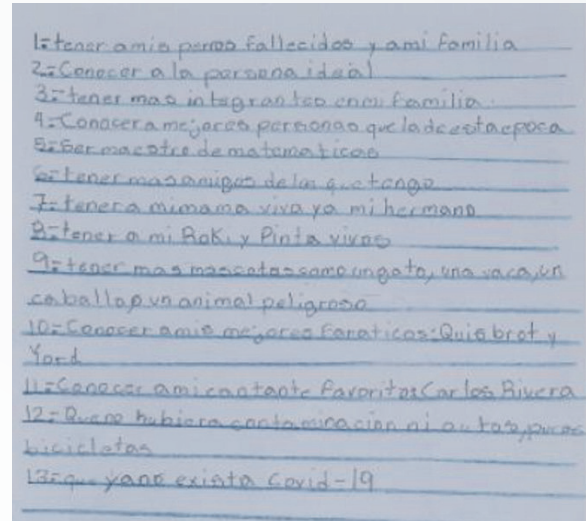 1:= tener a mis perros fallecidos y a mi familia
2:= Conocer a la persona ideal
3:= tener mas integrantes en mi familia.
4:= Conocer a mejores personas que la de esta epoca
5:= Ser maestro de matematicas
6:= tener mas amigos de los que tengo
7:= tener a mi mama viva y a mi hermano
8:= tener a mi Roki y Pinta vivos
9:= tener mas mascotas como un gato, una vaca, un
caballo, o un animal peligroso
10:= Conocer a mis mejores fanaticos: Quisbrot y
Yord
11:= Conocer a mi cantante favorito: Carlos Rivera
12:= Que no hubiera contaminacion ni autos, puras
bicicletas
13:= que ya no exista Covid-19